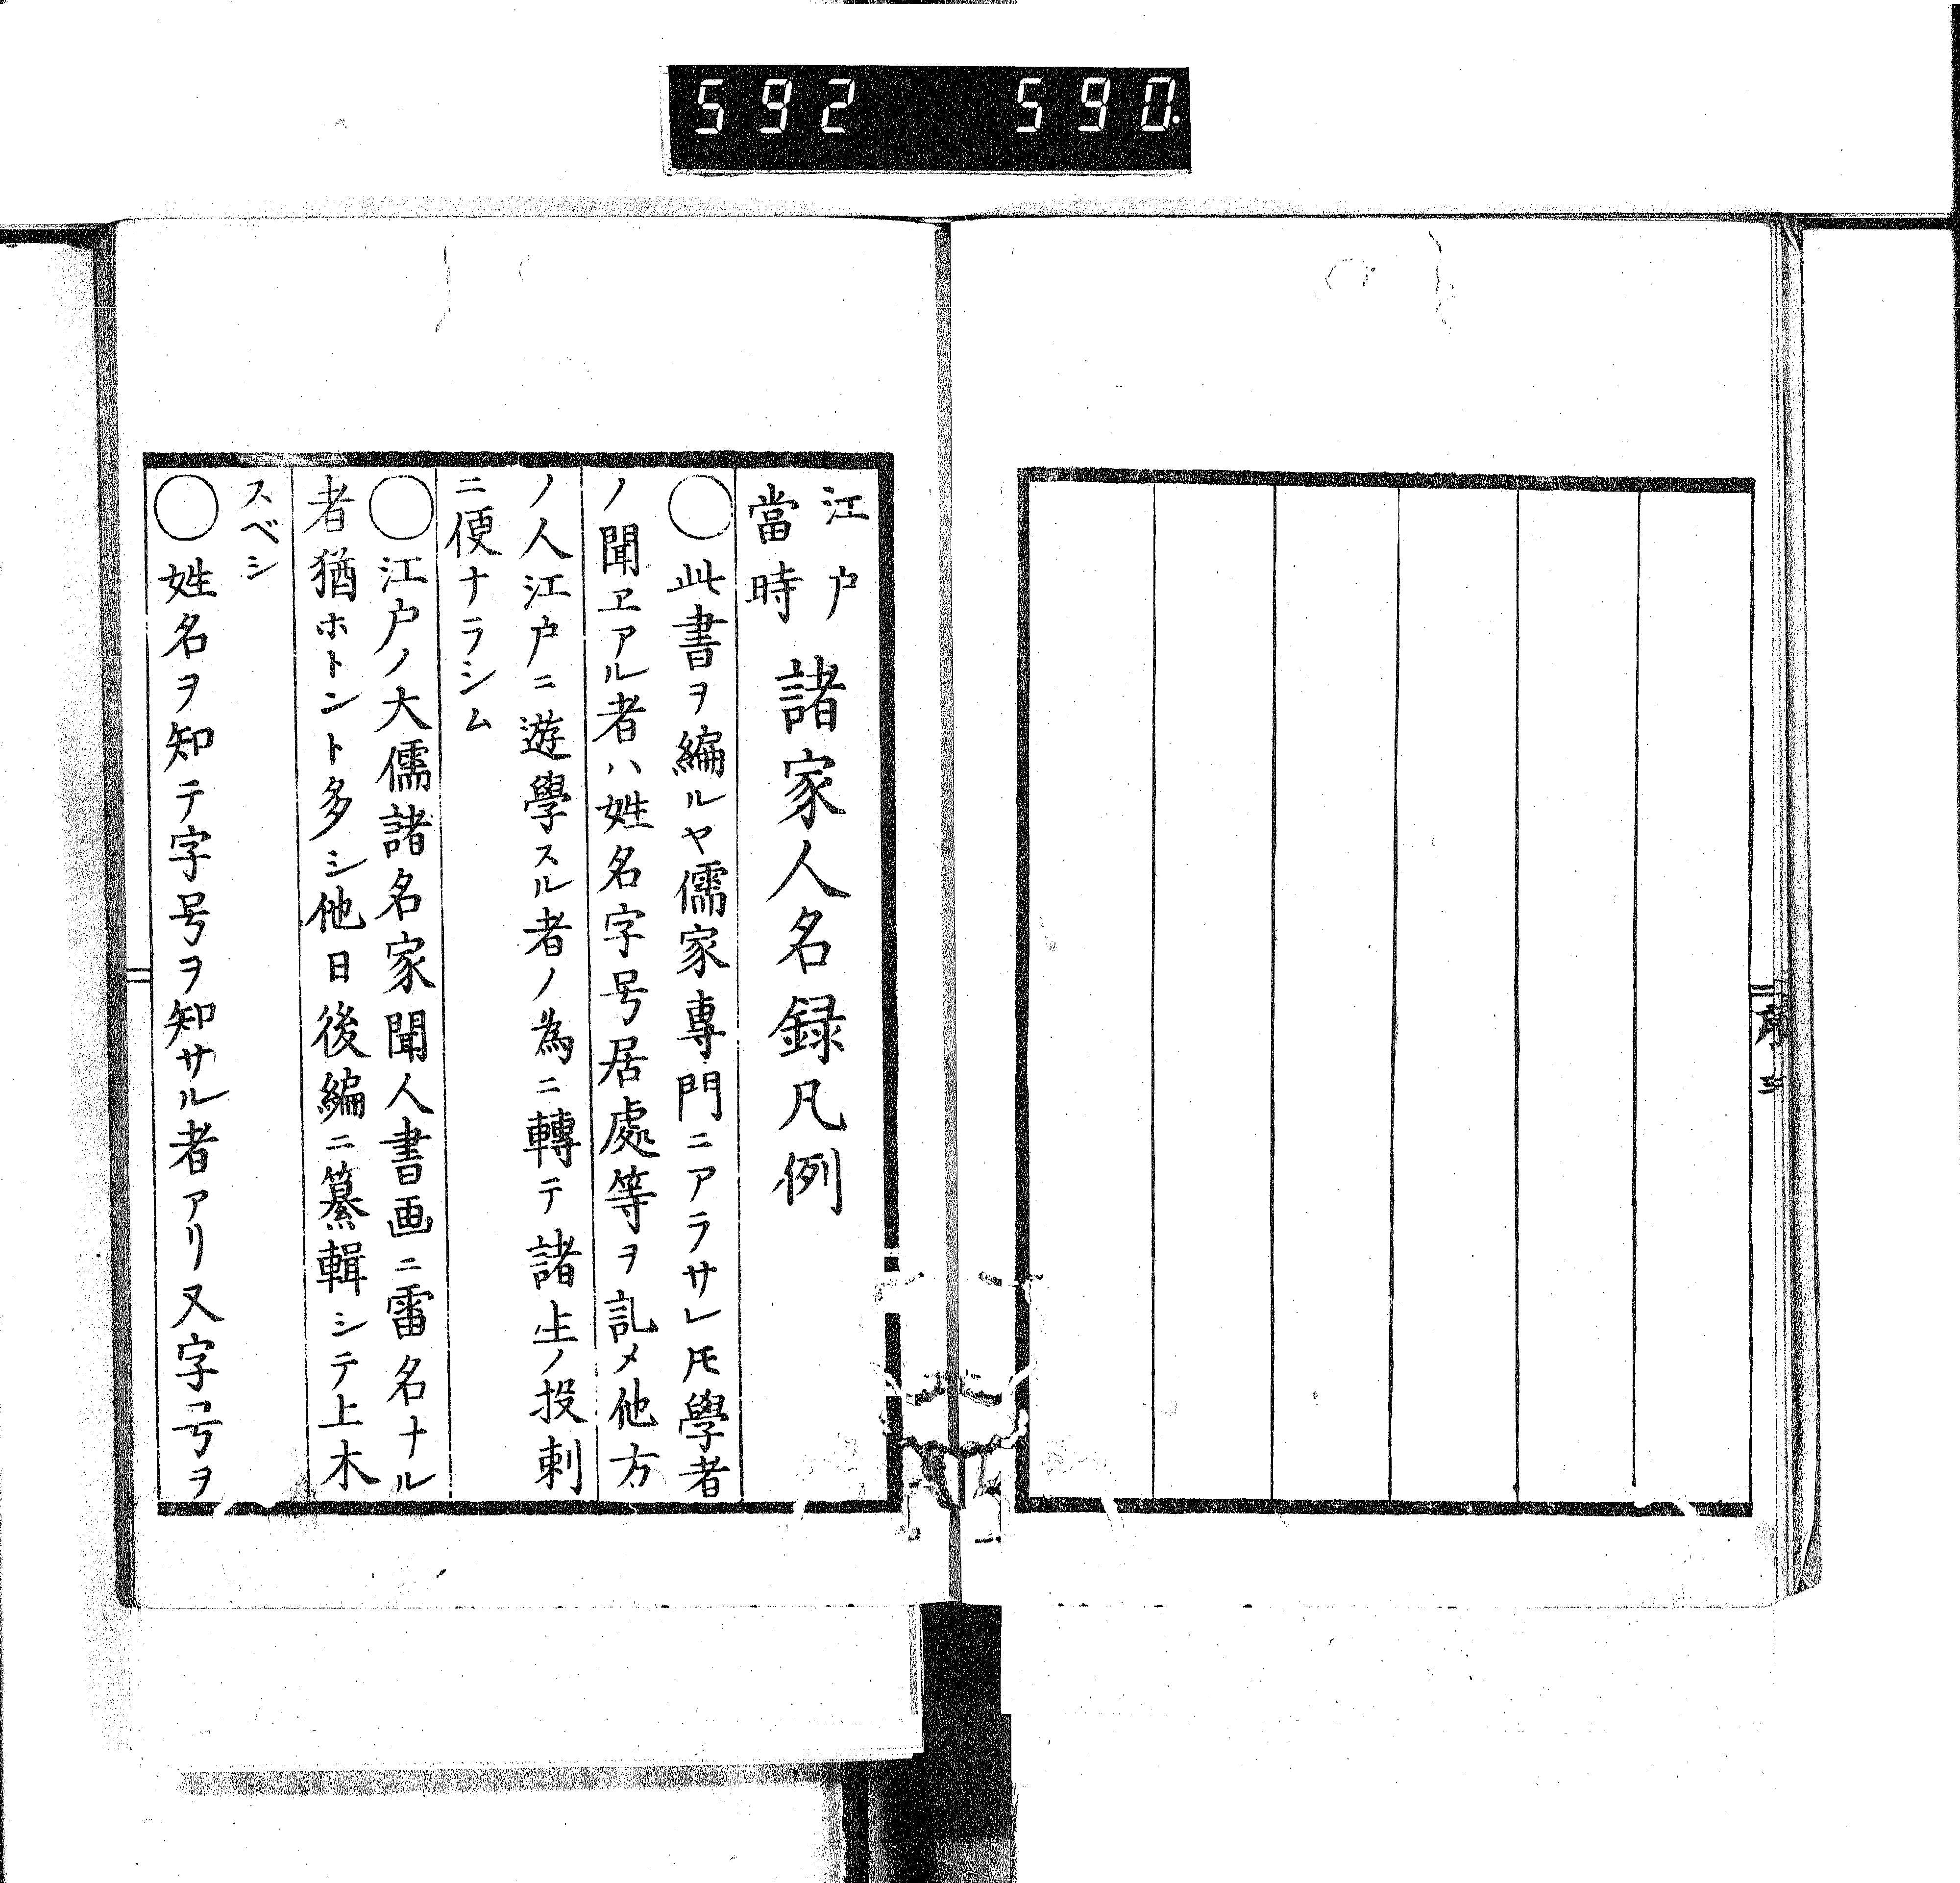 592 590.
序 三
江戸
當時
諸家人名録凡例
◯此書ヲ編ルヤ儒家專門ニアラサレ𪜈學者
ノ聞ヱアル者ハ姓名字号居處等ヲ記メ他方
ノ人江戸ニ遊學スル者ノ為ニ轉テ諸生ノ投刺
ニ便ナラシム
◯江戸ノ大儒諸名家聞人書画ニ雷名ナル
者猶ホトント多シ他日後編ニ纂輯シテ上木
スベシ
◯姓名ヲ知テ字号ヲ知サル者アリ又字号ヲ